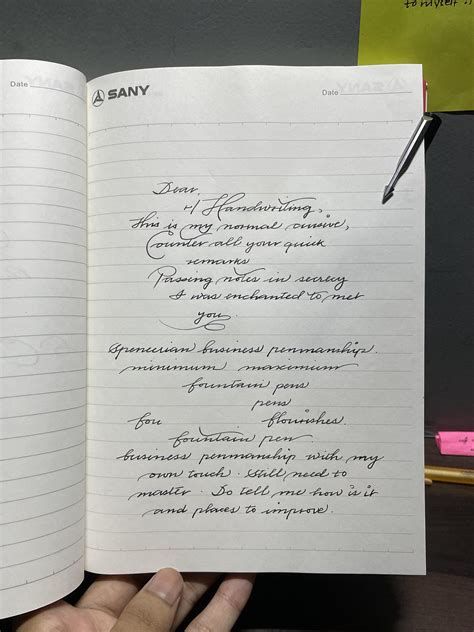 to myself !!
Date
SANY
Date
Dear,
r/ Handwriting,
This is my normal cursive,
Counter all your quick
remarks
Passing notes in secrecy
I was enchanted to met
you.
Spencerian business penmanship.
minimum maximum
fountain pens
pens
fou flourishes.
fountain pen
business penmanship with my
own touch. Still need to
master. Do tell me how is it
and places to improve.